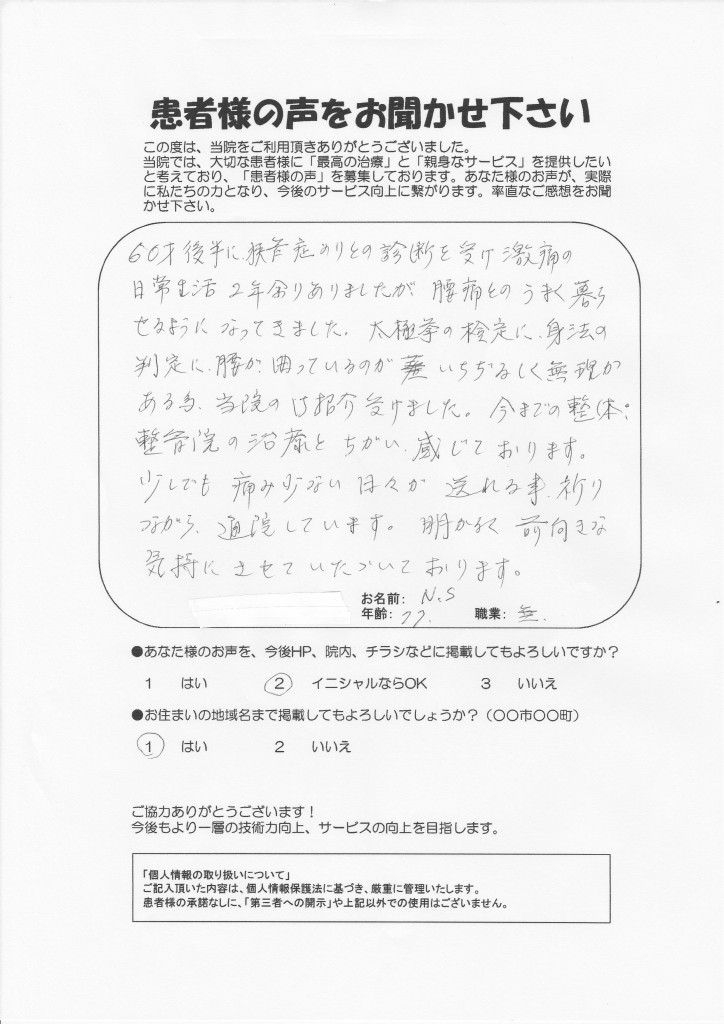 患者様の声をお聞かせ下さい
この度は、当院をご利用頂きありがとうございました。
当院では、大切な患者様に「最高の治療」と「親身なサービス」を提供したい
と考えており、「患者様の声」を募集しております。あなた様のお声が、実際
に私たちの力となり、今後のサービス向上に繋がります。率直なご感想をお聞
かせ下さい。
60才後半に、狭窄症ありとの診断を受け激痛の
日常生活2年余りありましたが、腰痛とのうまく暮ら
せるようになってきました。太極拳の検定に、身法の
判定に、腰が、困っているのがいちぢるしく無理が
ある為、当院のは紹介受けました。今までの整体、
整骨院の治療とちがい、感じております。
少しでも痛み少ない日々が送れる事、祈り
ながら、通院しています。明かるく前向きな
気持にさせていたづいております。
お名前: N.S
年齢: 77. 職業: 無.
●あなた様のお声を、今後HP、院内、チラシなどに掲載してもよろしいですか?
1 はい 2 イニシャルならOK 3 いいえ
●お住まいの地域名まで掲載してもよろしいでしょうか?(〇〇市〇〇町)
1 はい 2 いいえ
ご協力ありがとうございます!
今後もより一層の技術力向上、サービスの向上を目指します。
「個人情報の取り扱いについて」
ご記入頂いた内容は、個人情報保護法に基づき、厳重に管理いたします。
患者様の承諾なしに、「第三者への開示」や上記以外での使用はございません。